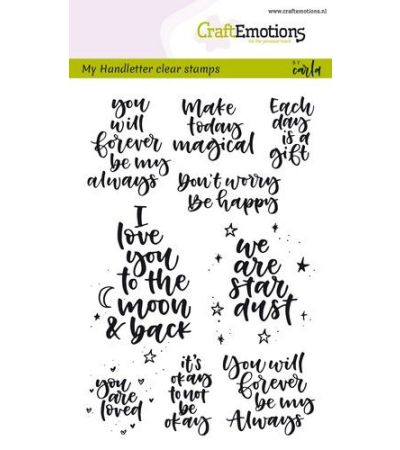 www.craftemotions.nl
CraftEmotions
for the personal touch
My Handletter clear stamps
BY
carla
you
will
forever
be my
always
Make
today
magical
Each
day
is a
gift
Don't worry
Be happy
I
love
you
to the
moon
& back
we
are
star
dust
you
are
loved
it's
okay
to not
be
okay
You will
forever
be my
Always